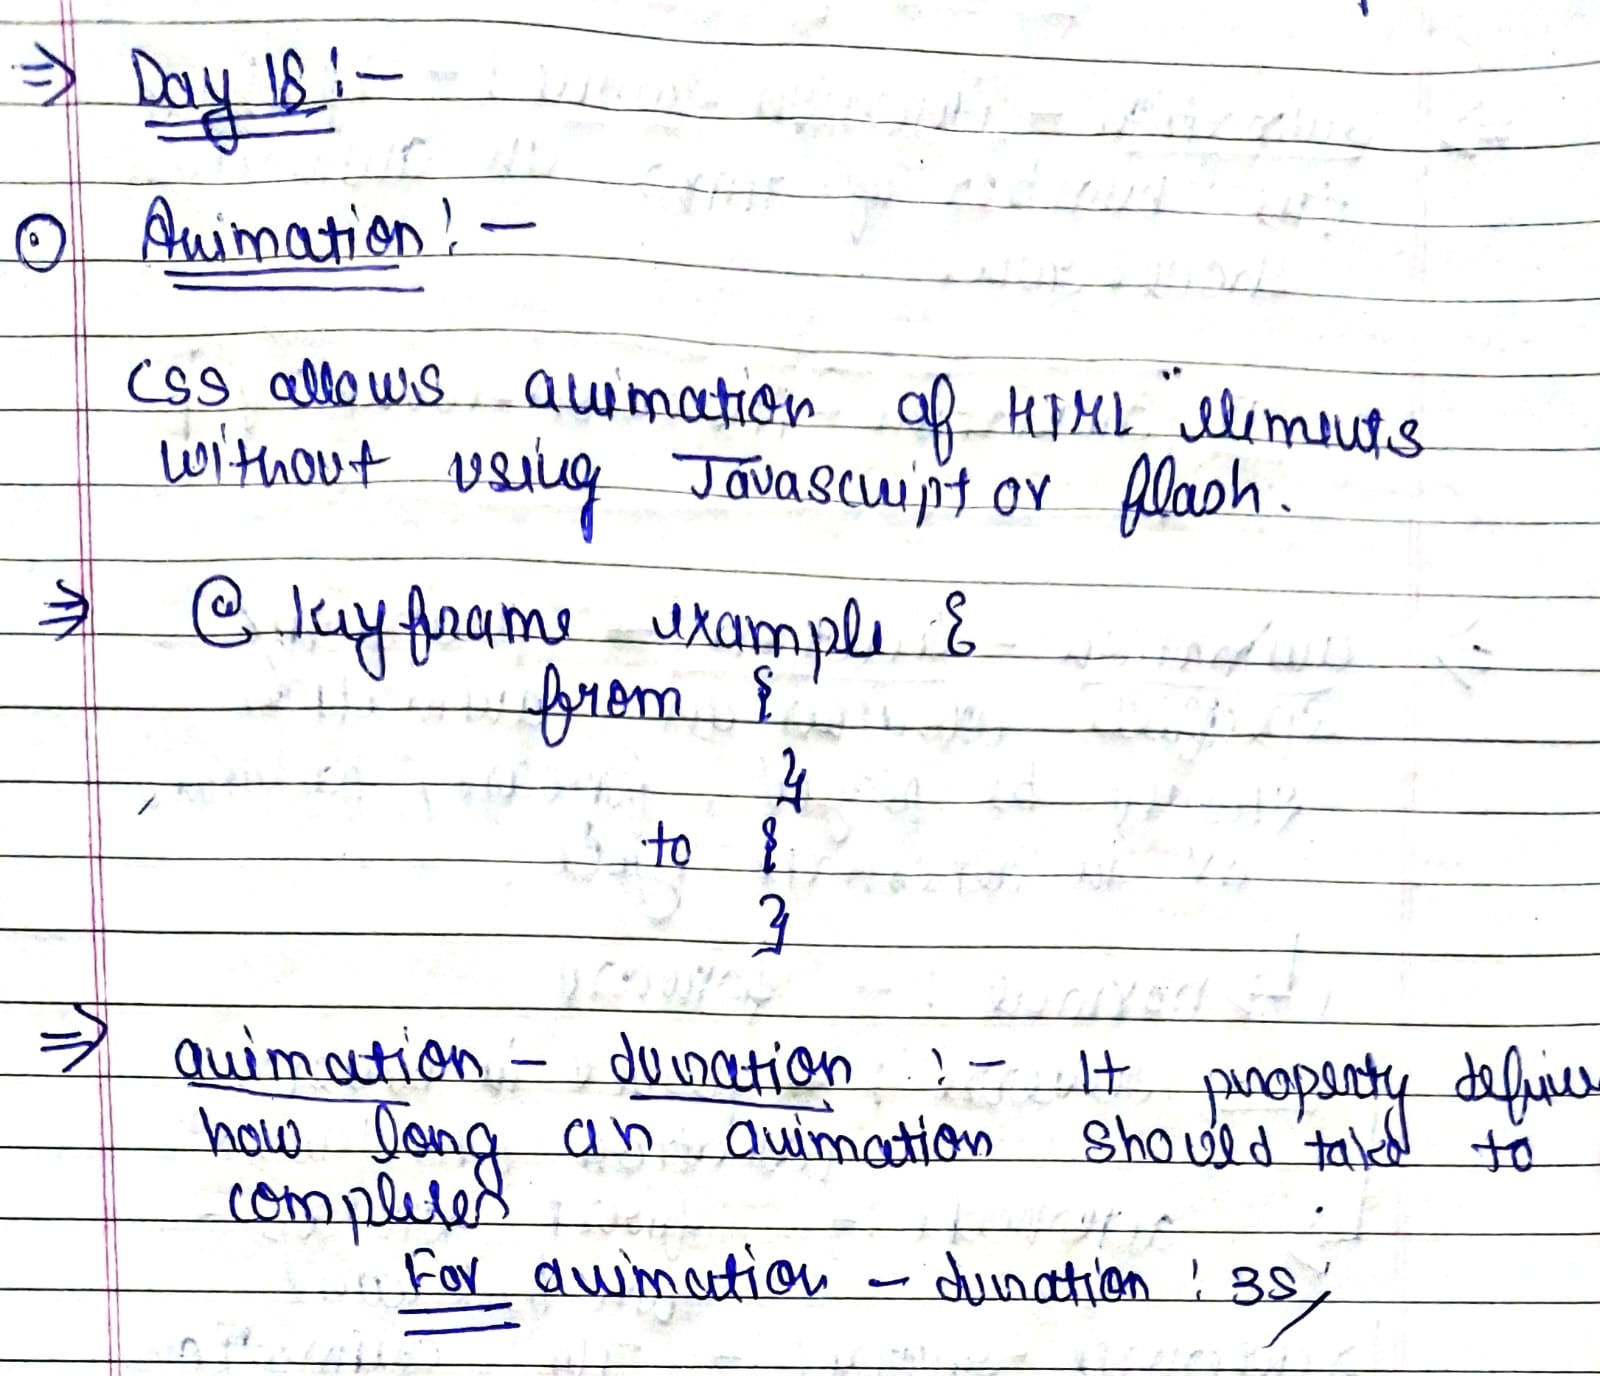 ⇒ Day 18 :-
⊙ Animation :-
CSS allows animation of HTML elements
without using Javascript or flash.
⇒ @ keyframe example {
from {
}
to {
}
⇒ animation - duration :- It property defines
how long an animation should take to
complete
For animation - duration : 3s;